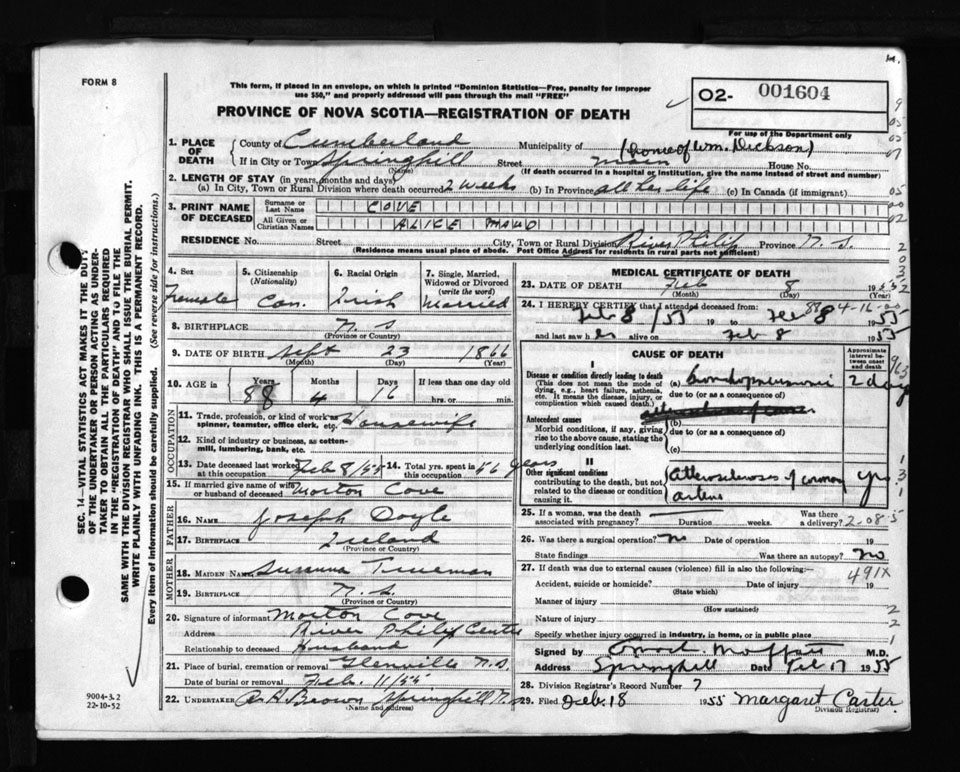 FORM 8
This form, if placed in an envelope, on which is printed "Dominion Statistics—Free, penalty for improper
use $50," and properly addressed will pass through the mail "FREE"
O2- 001604
For use of the Department only
PROVINCE OF NOVA SCOTIA—REGISTRATION OF DEATH
1. PLACE OF DEATH County of Cumberland Municipality of (home of Wm. Dickson)
If in City or Town Springhill Street Main House No.
(Name) (If death occurred in a hospital or institution, give the name instead of street and number)
2. LENGTH OF STAY (in years, months and days)
(a) In City, Town or Rural Division where death occurred 2 weeks (b) In Province all her life (c) In Canada (if immigrant)
3. PRINT NAME OF DECEASED Surname or Last Name COVE
All Given or Christian Names ALICE MAUD
RESIDENCE No. Street City, Town or Rural Division River Philip Province N.S.
(Residence means usual place of abode. Post Office Address for residents in rural parts not sufficient)
4. Sex Female
5. Citizenship (Nationality) Can.
6. Racial Origin Irish
7. Single, Married, Widowed or Divorced (write the word) Married
8. BIRTHPLACE N.S
9. DATE OF BIRTH Sept 23 1866
(Month) (Day) (Year)
10. AGE in Years 88 Months 4 Days 16 If less than one day old
hrs. or min.
OCCUPATION
11. Trade, profession, or kind of work as spinner, teamster, office clerk, etc. Housewife
12. Kind of industry or business, as cotton-mill, lumbering, bank, etc.
13. Date deceased last worked at this occupation Feb 8/55 14. Total yrs. spent in this occupation 56 years
15. If married give name of wife or husband of deceased Morton Cove
FATHER
16. NAME Joseph Doyle
17. BIRTHPLACE Ireland
(Province or Country)
MOTHER
18. MAIDEN NAME Susanna Trueman
19. BIRTHPLACE N.S.
(Province or Country)
20. Signature of informant Morton Cove
Address River Philip Centre
Relationship to deceased Husband
21. Place of burial, cremation or removal Glenville N.S
Date of burial or removal Feb. 11/55
22. UNDERTAKER Brown Springhill N.S
(Name and address)
MEDICAL CERTIFICATE OF DEATH
23. DATE OF DEATH Feb 8 1955
(Month) (Day) (Year)
24. I HEREBY CERTIFY that I attended deceased from:
Feb 8/55 19 to Feb 8 1955
and last saw her alive on Feb 8 1955
CAUSE OF DEATH
Approximate interval between onset and death
I
Disease or condition directly leading to death
(This does not mean the mode of dying, e.g., heart failure, asthenia, etc. It means the disease, injury, or complication which caused death.)
(a) Bronchopneumonia 2 days
due to (or as a consequence of)
Antecedent causes
Morbid conditions, if any, giving rise to the above cause, stating the underlying condition last.
(b)
due to (or as a consequence of)
(c)
II
Other significant conditions
contributing to the death, but not related to the disease or condition causing it.
Atherosclerosis of coronary yrs
25. If a woman, was the death associated with pregnancy? Duration weeks. Was there a delivery?
2-08-5
26. Was there a surgical operation? No Date of operation 19
State findings Was there an autopsy? No
27. If death was due to external causes (violence) fill in also the following:—
491X
Accident, suicide or homicide? Date of injury 19
(State which)
Manner of injury
(How sustained)
Nature of injury
Specify whether injury occurred in industry, in home, or in public place
Signed by Moffatt M.D.
Address Springhill Date Feb 17 1955
28. Division Registrar's Record Number 7
29. Filed Feb. 18 1955 Margaret Carter
Division Registrar
SEC. 14—VITAL STATISTICS ACT MAKES IT THE DUTY
OF THE UNDERTAKER OR PERSON ACTING AS UNDER-
TAKER TO OBTAIN ALL THE PARTICULARS REQUIRED
IN THE "REGISTRATION OF DEATH" AND TO FILE THE
SAME WITH THE DIVISION REGISTRAR WHO SHALL ISSUE THE BURIAL PERMIT.
WRITE PLAINLY WITH UNFADING INK. THIS IS A PERMANENT RECORD.
Every item of information should be carefully supplied. (See reverse side for instructions.)
9004-3.2
22-10-52